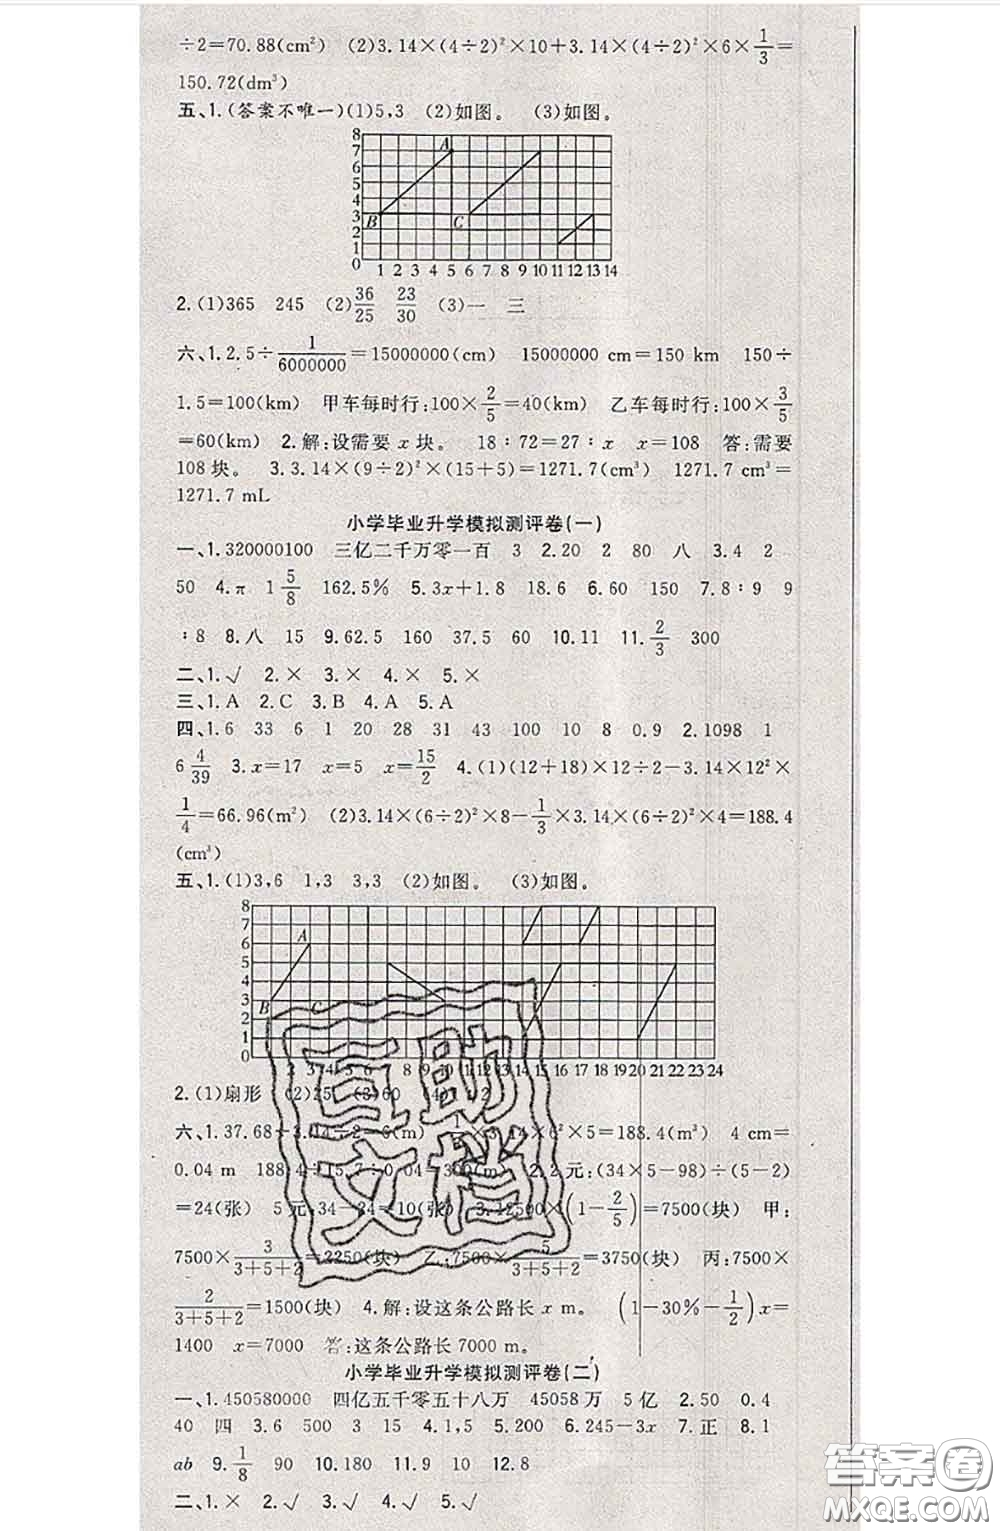 ÷2=70.88(cm²) (2)3.14×(4÷2)²×10+3.14×(4÷2)²×6×1/3=
150.72(dm³)
五、1.(答案不唯一)(1)5,3 (2)如图。 (3)如图。
8
7
6
5
4
3
2
1
0
A
B
C
1 2 3 4 5 6 7 8 9 10 11 12 13 14
2.(1)365 245 (2)36/25 23/30 (3)一 三
六、1.2.5÷1/6000000=15000000(cm) 15000000 cm=150 km 150÷
1.5=100(km) 甲车每时行:100×2/5=40(km) 乙车每时行:100×3/5
=60(km) 2.解:设需要 x 块。 18∶72=27∶x x=108 答:需要
108块。 3.3.14×(9÷2)²×(15+5)=1271.7(cm³) 1271.7 cm³=
1271.7 mL
小学毕业升学模拟测评卷(一)
一、1.320000100 三亿二千万零一百 3 2.20 2 80 八 3.4 2
50 4.π 1 5/8 162.5% 5.3x+1.8 18.6 6.60 150 7.8∶9 9
∶8 8.八 15 9.62.5 160 37.5 60 10.11 11.2/3 300
二、1.√ 2.× 3.× 4.× 5.×
三、1.A 2.C 3.B 4.A 5.A
四、1.6 33 6 1 20 28 31 43 100 10 8 0.9 2.1098 1
6 4/39 3.x=17 x=5 x=15/2 4.(1)(12+18)×12÷2-3.14×12²×
1/4=66.96(m²) (2)3.14×(6÷2)²×8-1/3×3.14×(6÷2)²×4=188.4
(cm³)
五、1.(1)3,6 1,3 3,3 (2)如图。 (3)如图。
8
7
6
5
4
3
2
1
0
A
B
C
2 3 4 5 6 7 8 9 10 11 12 13 14 15 16 17 18 19 20 21 22 23 24
2.(1)扇形 (2)25 (3)60 40 2
六、1.37.68÷3.14÷2=6(m) ×3.14×6²×5=188.4(m³) 4 cm=
0.04 m 188.4÷15.7÷0.04=300(m) 2.2元:(34×5-98)÷(5-2)
=24(张) 5元:34-24=10(张) 3.12500×(1-2/5)=7500(块) 甲:
7500×3/(3+5+2)=2250(块) 乙:7500×5/(3+5+2)=3750(块) 丙:7500×
2/(3+5+2)=1500(块) 4.解:设这条公路长 x m。 (1-30%-1/2)x=
1400 x=7000 答:这条公路长 7000 m。
小学毕业升学模拟测评卷(二)
一、1.450580000 四亿五千零五十八万 45058万 5亿 2.50 0.4
40 四 3.6 500 3 15 4.1,5 5.200 6.245-3x 7.正 8.1
ab 9.1/8 90 10.180 11.9 10 12.8
二、1.× 2.√ 3.√ 4.√ 5.√
互助
文档
答案圈
MXQE.COM